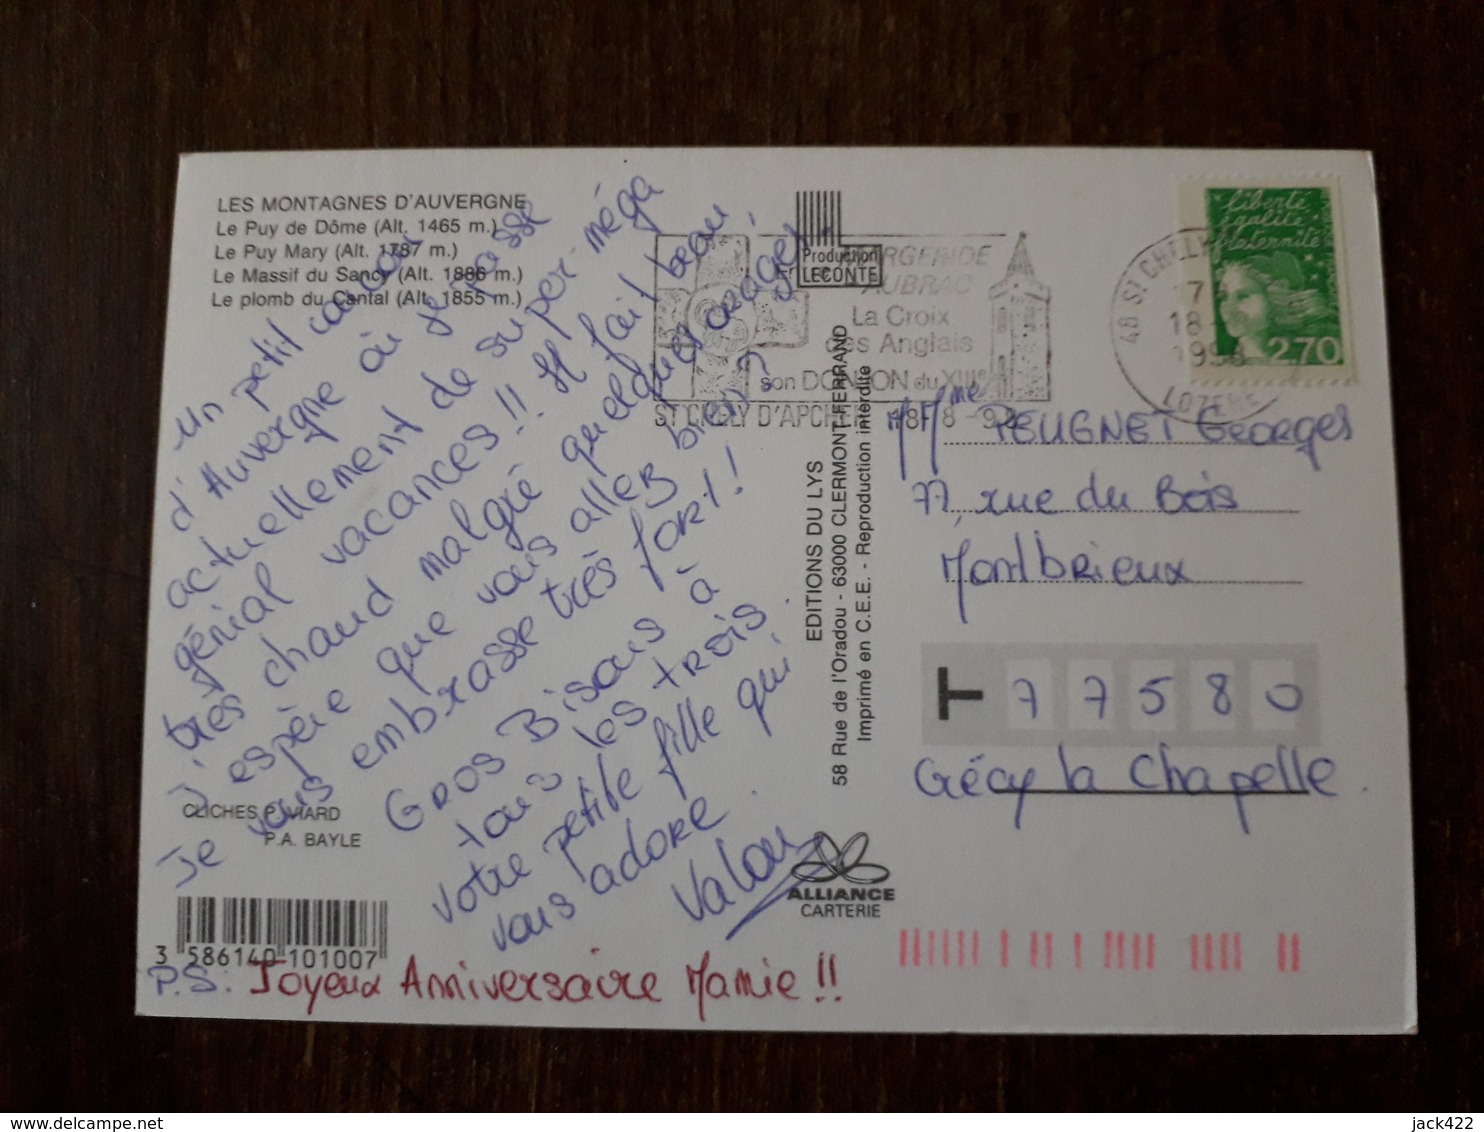 LES MONTAGNES D'AUVERGNE
Le Puy de Dôme (Alt. 1465 m.)
Le Puy Mary (Alt. 1787 m.)
Le Massif du Sancy (Alt. 1886 m.)
Le plomb du Cantal (Alt. 1855 m.)
Un petit coucou
d'Auvergne où je passe
actuellement de super méga
génial vacances !! Il fait beau,
très chaud malgré quelques orages,
j'espère que vous allez bien ?
Je vous embrasse très fort !
Gros Bisous à
tous les trois.
votre petite fille qui
vous adore.
Valou
P.S: Joyeux Anniversaire Mamie !!
CLICHES P. VIARD
P.A. BAYLE
3 586140 101007
Production
LECONTE
MARGERIDE
AUBRAC
La Croix
des Anglais
son DONJON du XIIIe
ST CHELY D'APCHER 18-8-98
48 ST CHELY
17
18-
1998
LOZERE
liberté
égalité
fraternité
2,70
EDITIONS DU LYS
58 Rue de l'Oradou - 63000 CLERMONT-FERRAND
Imprimé en C.E.E. - Reproduction interdite
ALLIANCE
CARTERIE
M Mme PEUGNET Georges
77, rue du Bois
Montbrieux
T 77580
Crécy la Chapelle.
jack422